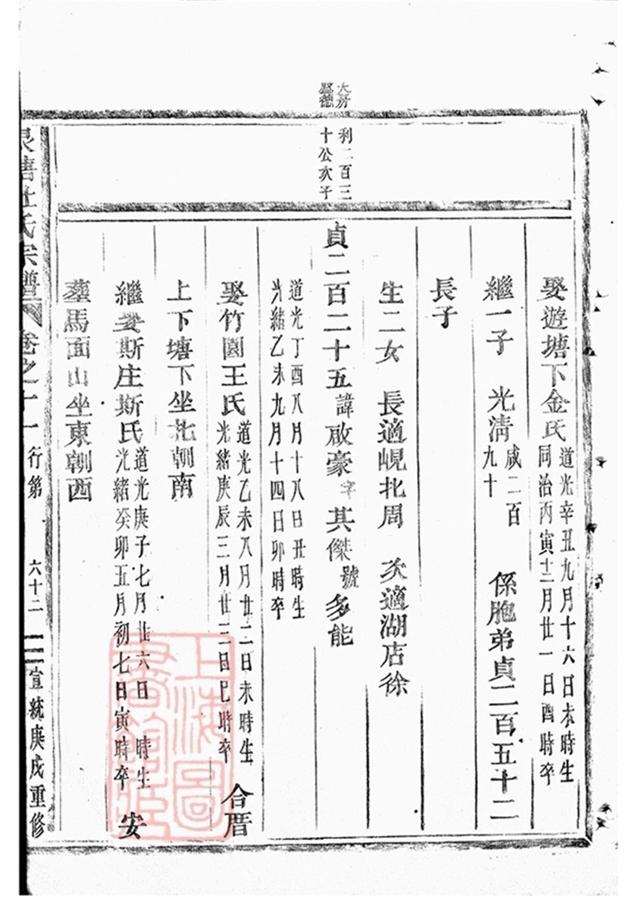 大房
利二百三
十公次子
娶遊塘下金氏道光辛丑九月十六日未時生
同治丙寅十二月廿一日酉時卒
繼一子 光清咸二百
九十 係胞弟貞二百五十二
長子
生二女 長適峴北周 次適湖店徐
貞二百二十五諱啟豪字其傑號多能
道光丁酉八月十八日丑時生
光緒乙未九月十四日卯時卒
娶竹園王氏道光乙未八月廿二日未時生
光緒庚辰三月廿三日巳時卒 合厝
上下塘下坐北朝南
繼娶斯庄斯氏道光庚子七月廿六日 時生
光緒癸卯五月初七日寅時卒 安
塟馬面山坐東朝西
塘杜氏宗譜 卷之十一 行第 六十二 宣統庚戌重修
上海圖書館藏